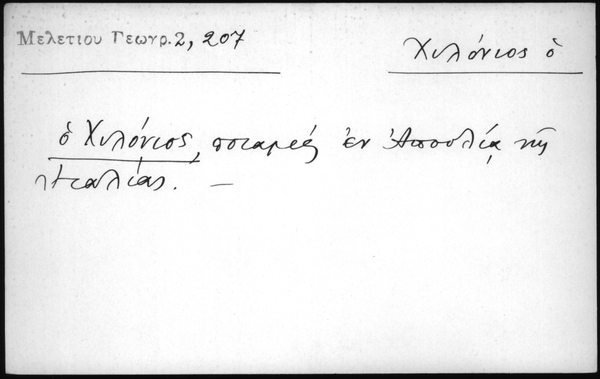 Μελετίου Γεωγρ. 2, 207
Χυλόνιος ὁ
ὁ Χυλόνιος, ποταμὸς ἐν Ἀπουλίᾳ τῆς
Ἰταλίας. —